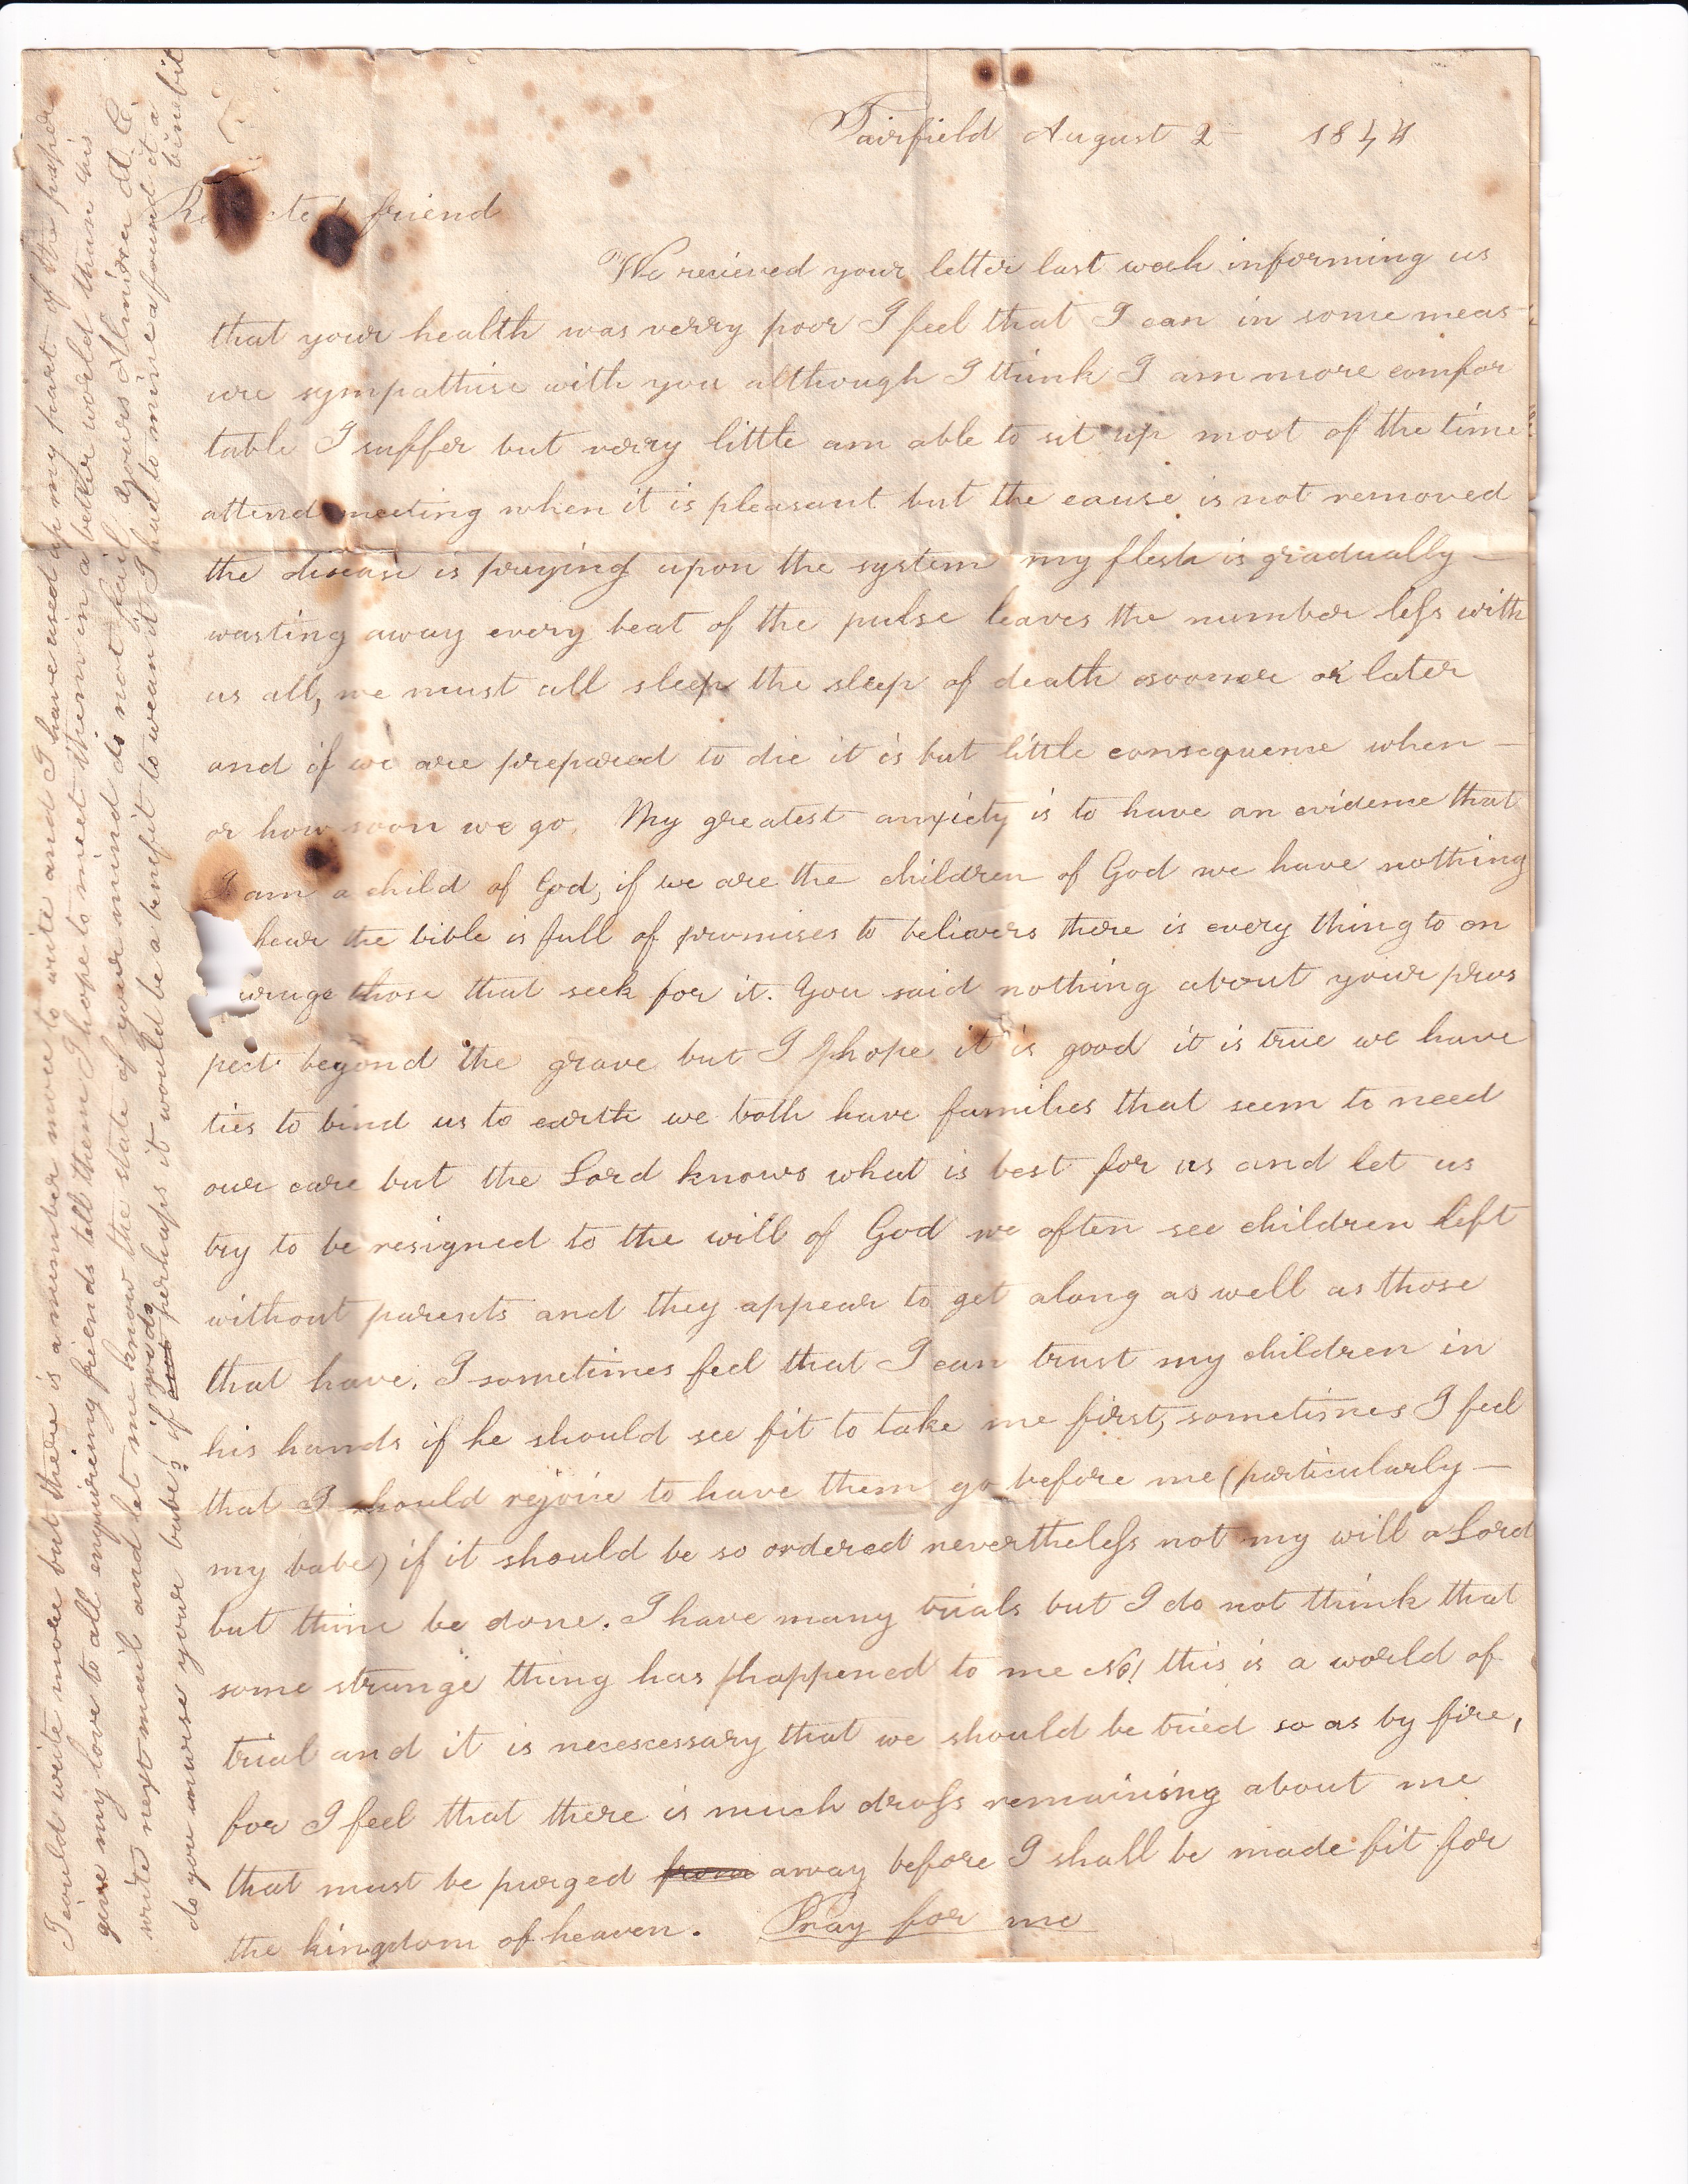 Fairfield August 2 1844
friend
We recieved your letter last week informing us
that your health was verry poor I feel that I can in some meas-
ure sympathise with you although I think I am more comfor
table I suffer but verry little am able to sit up most of the time
attend meeting when it is pleasant but the cause is not removed
the disease is preying upon the system my flesh is gradually —
wasting away every beat of the pulse leaves the number less with
us all, we must all sleep the sleep of death sooner or later
and if we are prepared to die it is but little consequence when —
or how soon we go. My greatest anxiety is to have an evidence that
I am a child of God, if we are the children of God we have nothing
the bible is full of promises to believers there is every thing to en
those that seek for it. You said nothing about your pros
pect beyond the grave but I hope it is good it is true we have
ties to bind us to earth we both have families that seem to need
our care but the Lord knows what is best for us and let us
try to be resigned to the will of God we often see children left
without parents and they appear to get along as well as those
that have. I sometimes feel that I can trust my children in
his hands if he should see fit to take me first, sometimes I feel
that I should rejoice to have them go before me (particularly —
my babe) if it should be so ordered nevertheless not my will o Lord
but thine be done. I have many trials but I do not think that
some strange thing has happened to me No! this is a world of
trial and it is necescessary that we should be tried so as by fire,
for I feel that there is much dross remaining about me
that must be purged from away before I shall be made fit for
the kingdom of heaven. Pray for me
I could write more but there is a number more to write and I have used up my part of the paper
give my love to all enquireing friends tell them I hope to meet them in a better world than this
write next mail and let me know the state of your mind do not fail yours Almira
do you nurse your babe? if you do perhaps it would be a benefit to wean it I had to mine & found it a
benefit